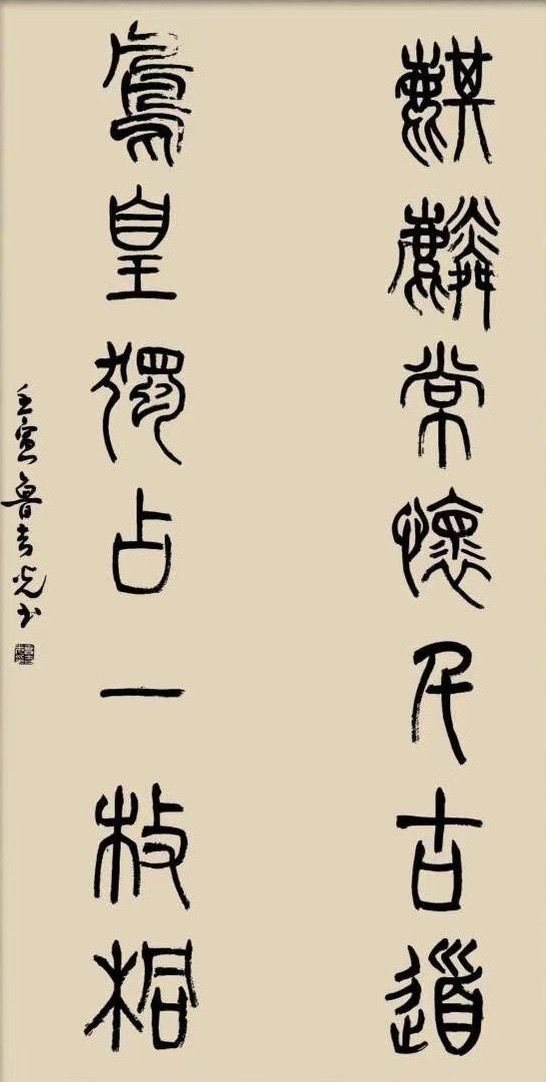 麒麟常懷千古道
鳳皇獨占一枝桐
壬寅魯光书